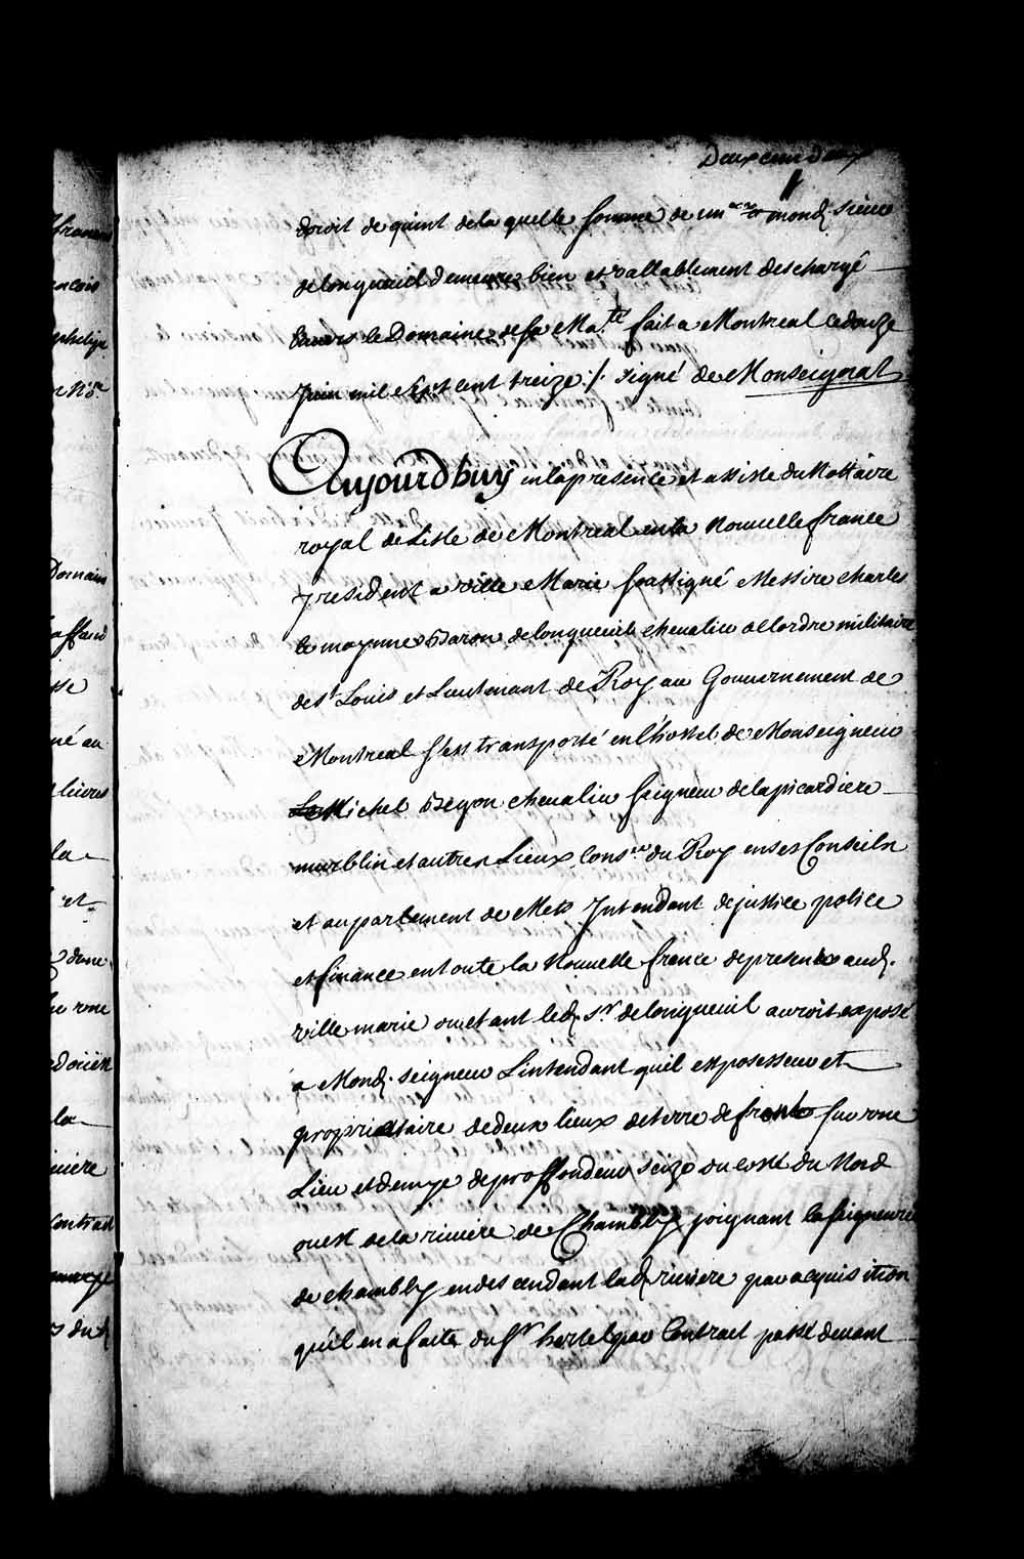 Deux cens deux
droit de quint de la quelle somme de mond. sieur
de longueuil demeure bien et vallablement deschargé
Envers le Domaine de sa Ma.té fait a Montreal le douze
Juin mil sept cent treize ./. signé de Monseignat
Aujourdhuy en la presence et assisté du Nottaire
royal de L'isle de Montreal en la Nouuelle france
resident a ville Marie soussigné Messire charles
le moyne Baron de longueuil cheualier de l'ordre militaire
de St Louis et Lieutenant de Roy au Gouuernement de
Montreal s'est transporté en l'hostel de Monseigneur
Michel Begon cheualier seigneur de la picardiere
murblin et autres Lieux Cons.er du Roy en ses Conseils
et au parlement de Mets Intendant de justice police
et finance en toute la Nouuelle france de present aud.
ville marie ou etant led. Sr de longueuil auroit exposé
a Mond. seigneur L'intendant quil est possesseur et
proprietaire de deux lieux de terre de front sur une
Lieu et demye de proffondeur scize du costé du Nord
ouest de la riuiere de Chambly joignant la seigneurie
de chambly en des cendant lad. riuiere par acquis ition
quil en a faite du Sr hertel par Contract passé deuant
francois
Domaine
né au
liures
la
et
dune
la
iuiere
Contract
du